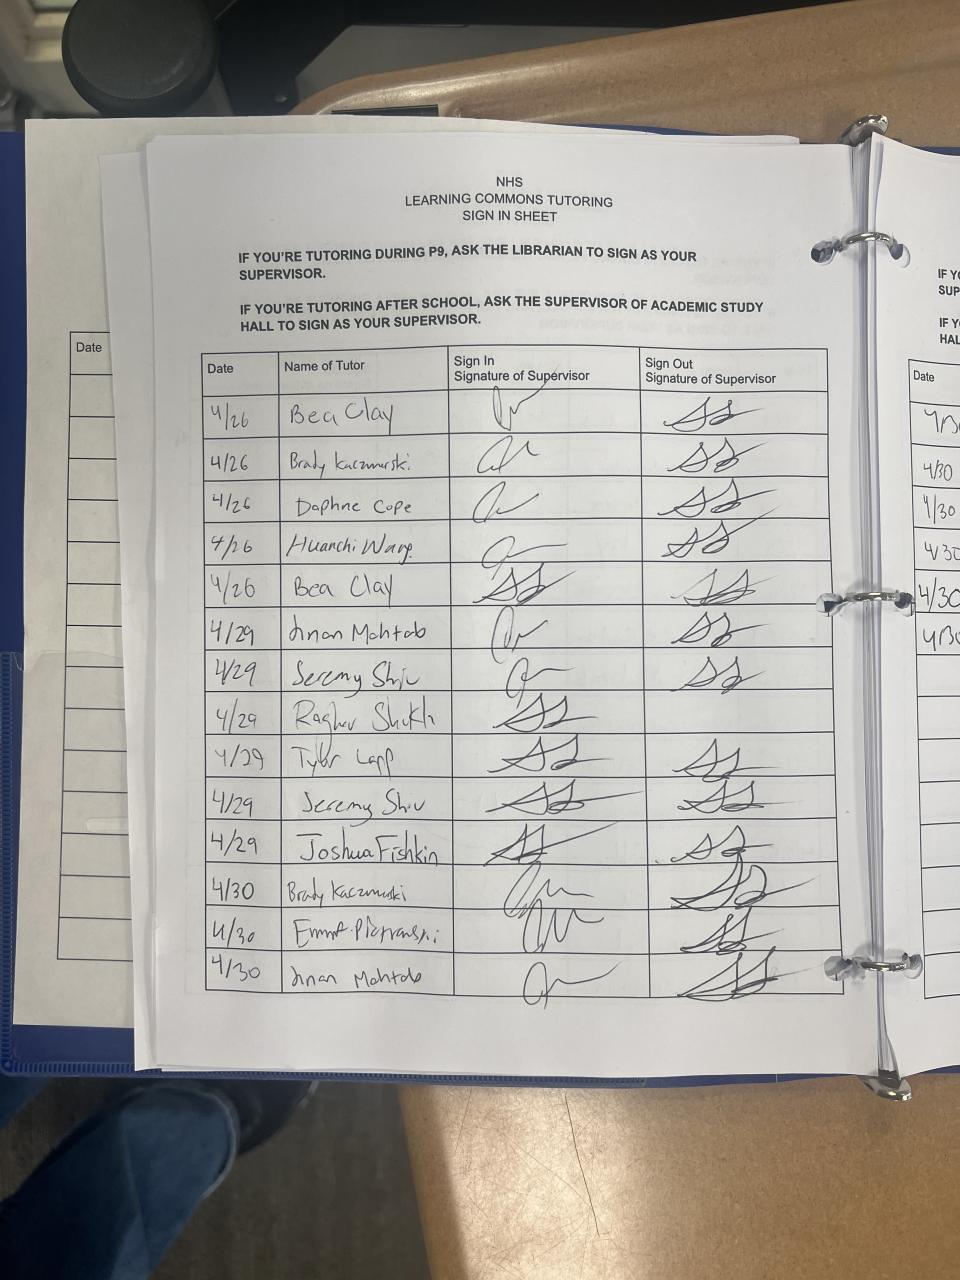 NHS
LEARNING COMMONS TUTORING
SIGN IN SHEET
IF YOU'RE TUTORING DURING P9, ASK THE LIBRARIAN TO SIGN AS YOUR
SUPERVISOR.
IF YOU'RE TUTORING AFTER SCHOOL, ASK THE SUPERVISOR OF ACADEMIC STUDY
HALL TO SIGN AS YOUR SUPERVISOR.
Date
Date Name of Tutor Sign In Signature of Supervisor Sign Out Signature of Supervisor
4/26 Bea Clay
4/26 Brady Kaczmarski
4/26 Daphne Cope
4/26 Huanchi Wang
4/26 Bea Clay
4/29 Mahtab
4/29 Jeremy Shiu
4/29 Raghav
4/29 Tyler Lapp
4/29 Jeremy Shiu
4/29 Joshua Fishkin
4/30 Brady Kaczmarski
4/30
4/30 Mahtab
IF Y
SUP
IF Y
HAL
Date
4/30
4/30
4/30
4/30